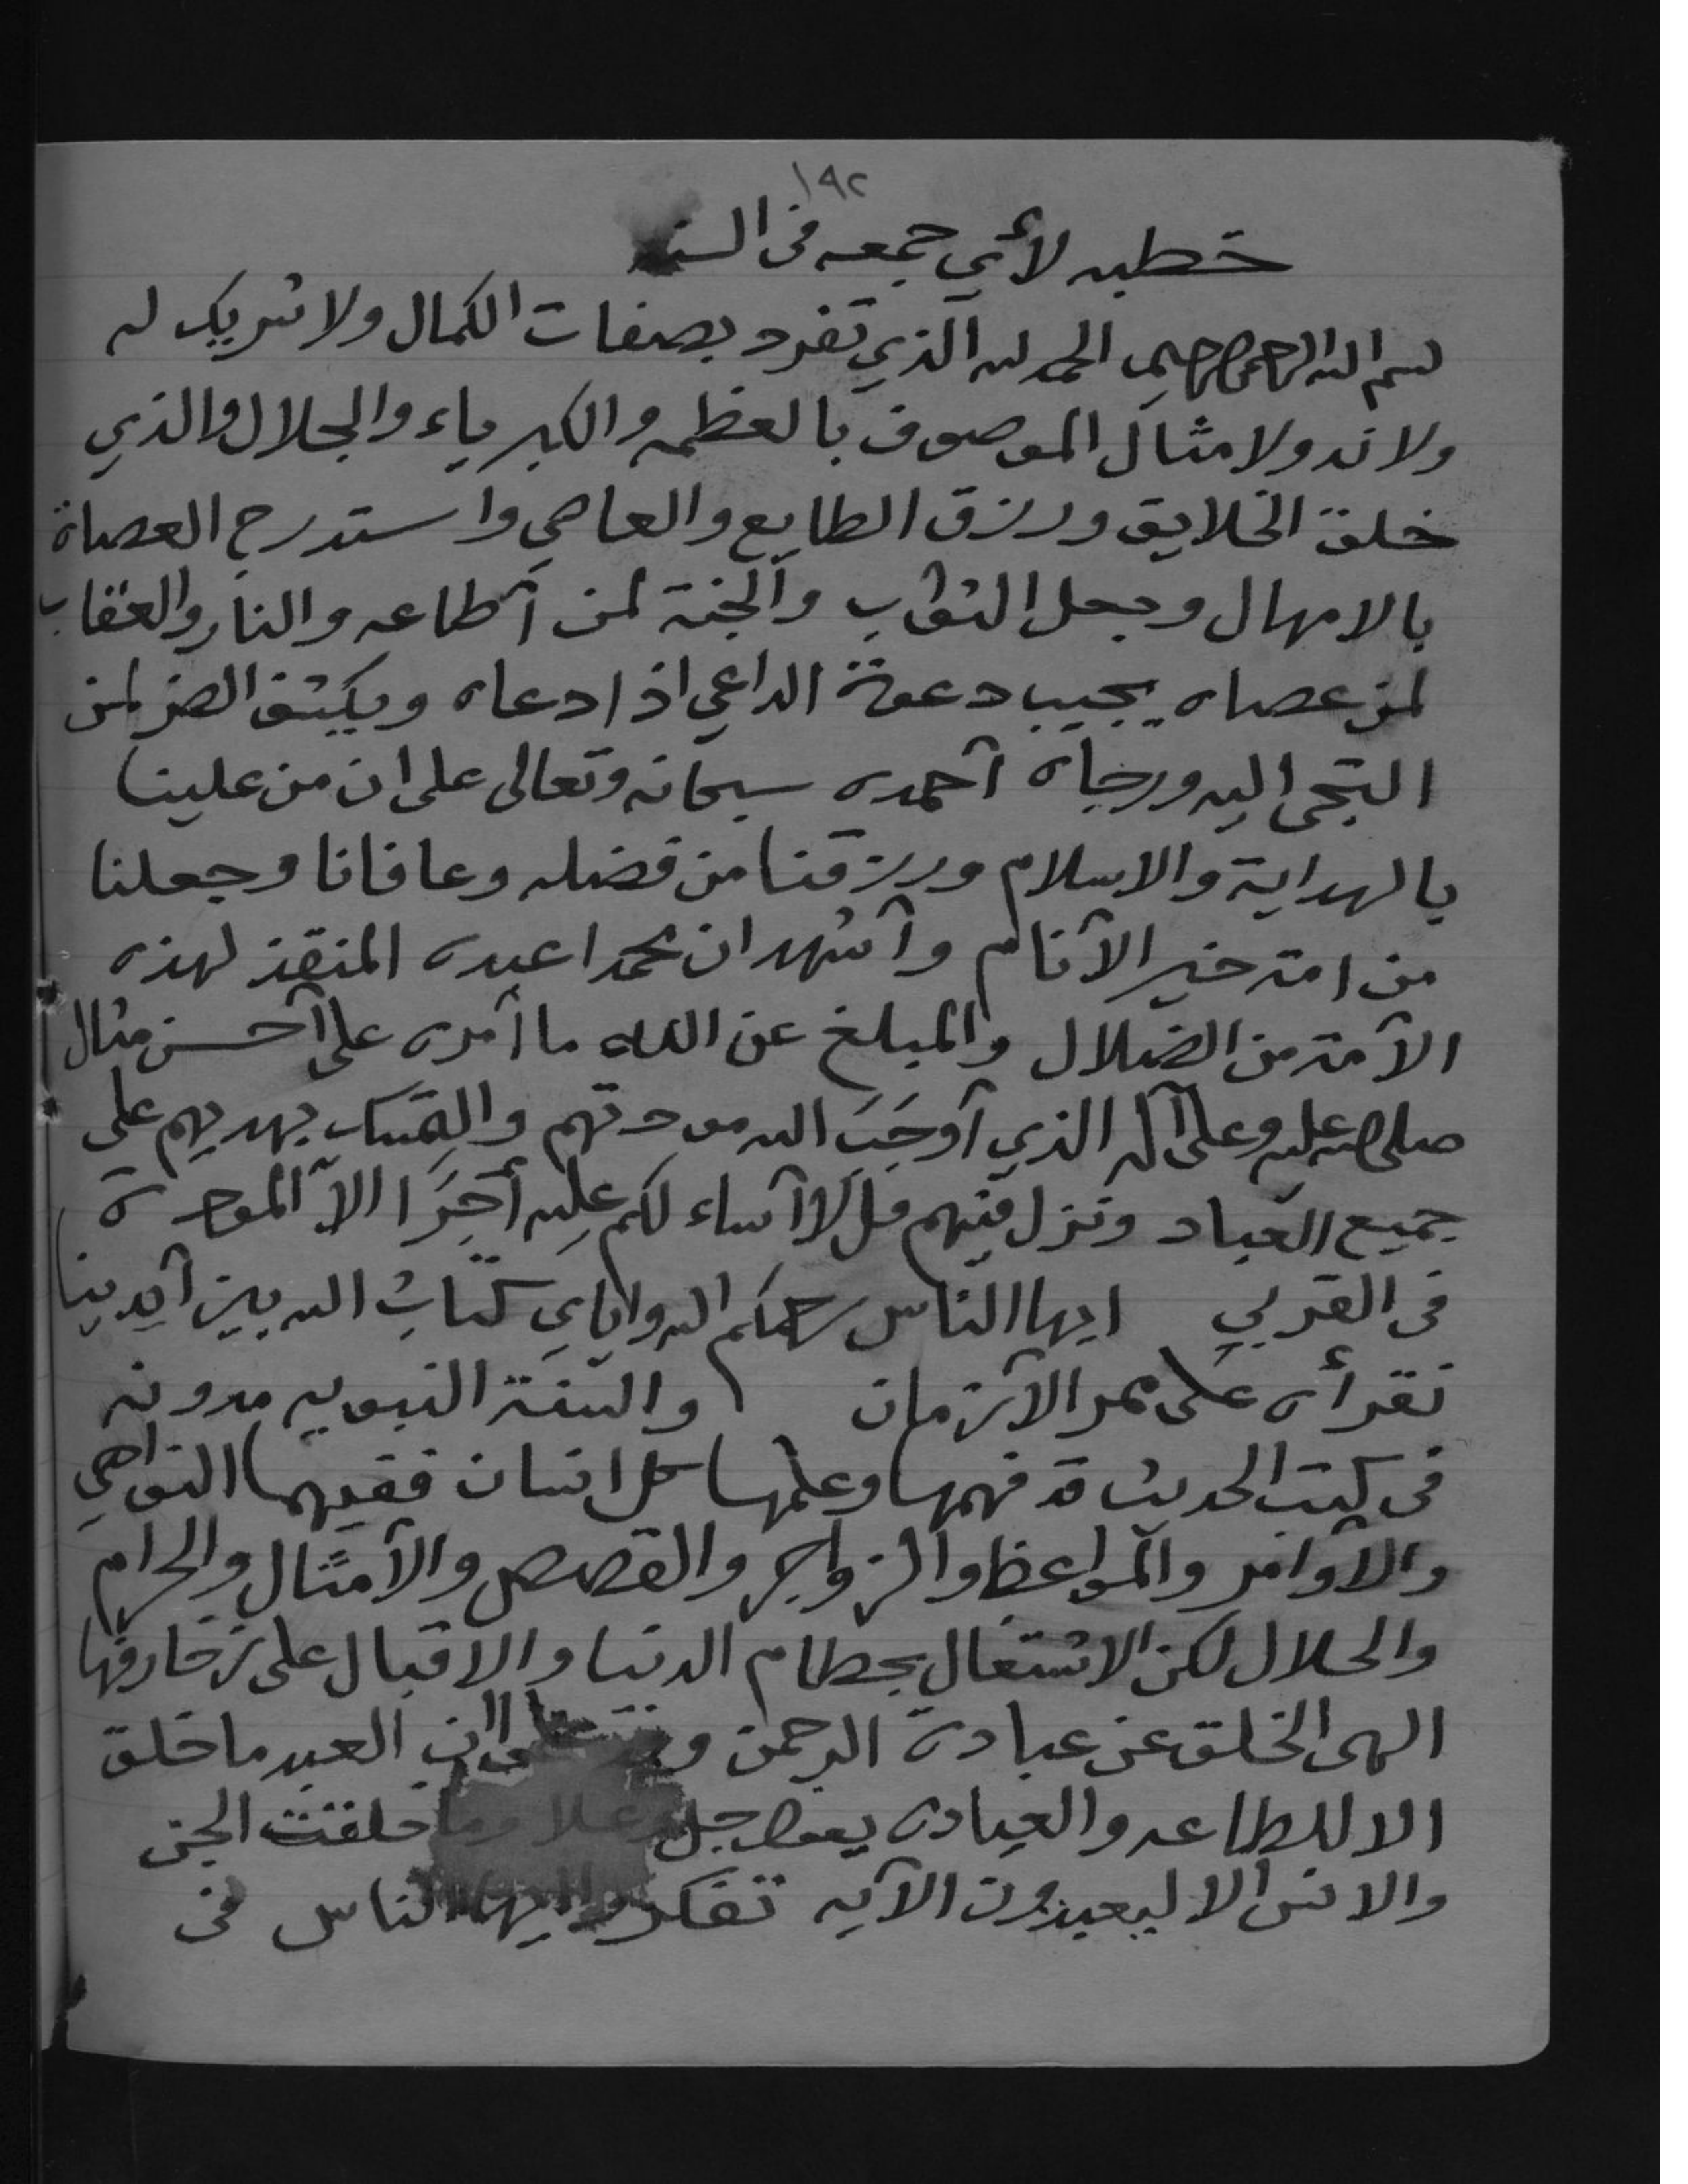 ١٩٢
خطبه لأي جمعه في السنه
بسم الله الرحمن الرحيم الحمد لله الذي تفرد بصفات الكمال ولا شريك له
ولا ند ولا مثال الموصوف بالعظمه والكبرياء والجلال والذي
خلق الخلايق ورزق الطايع والعاصي واستدرج العصاة
بالامهال وجعل الثواب والجنة لمن أطاعه والنار والعقاب
لمن عصاه يجيب دعوة الداعي اذا دعاه ويكشف الضر لمن
التجى اليه ورجاه أحمده سبحانه وتعالى على ان من علينا
بالهداية والاسلام ورزقنا من فضله وعافانا وجعلنا
من امة خير الأنام وأشهد ان محمدا عبده المنقذ لهذه
الأمة من الضلال والمبلغ عن الله ما أمره على أحسن مثال
صلى الله عليه وعلى آله الذي أوجب الله مودتهم والتمسك بهديهم على
جميع العباد ونزل فيهم قل لا أساء لكم عليه أجرا الا المودة
في القربي ايها الناس رحمكم الله واياي كتاب الله بين أيدينا
نقرأه على ممر الأزمان والسنة النبويه مدونه
في كتب الحديث قد فهمها وعلمها كل انسان ففيهما النواهي
والأوامر والمواعظ والزواجر والقصص والأمثال والحرام
والحلال لكن الاشتغال بحطام الدنيا والاقبال على زخارفها
الهى الخلق عن عبادة الرحمن ان العبد ما خلق
الا للطاعه والعبادة يقول جل وعلا وما خلقت الجن
والانس الا ليعبدون الآيه تفكروا ايها الناس في